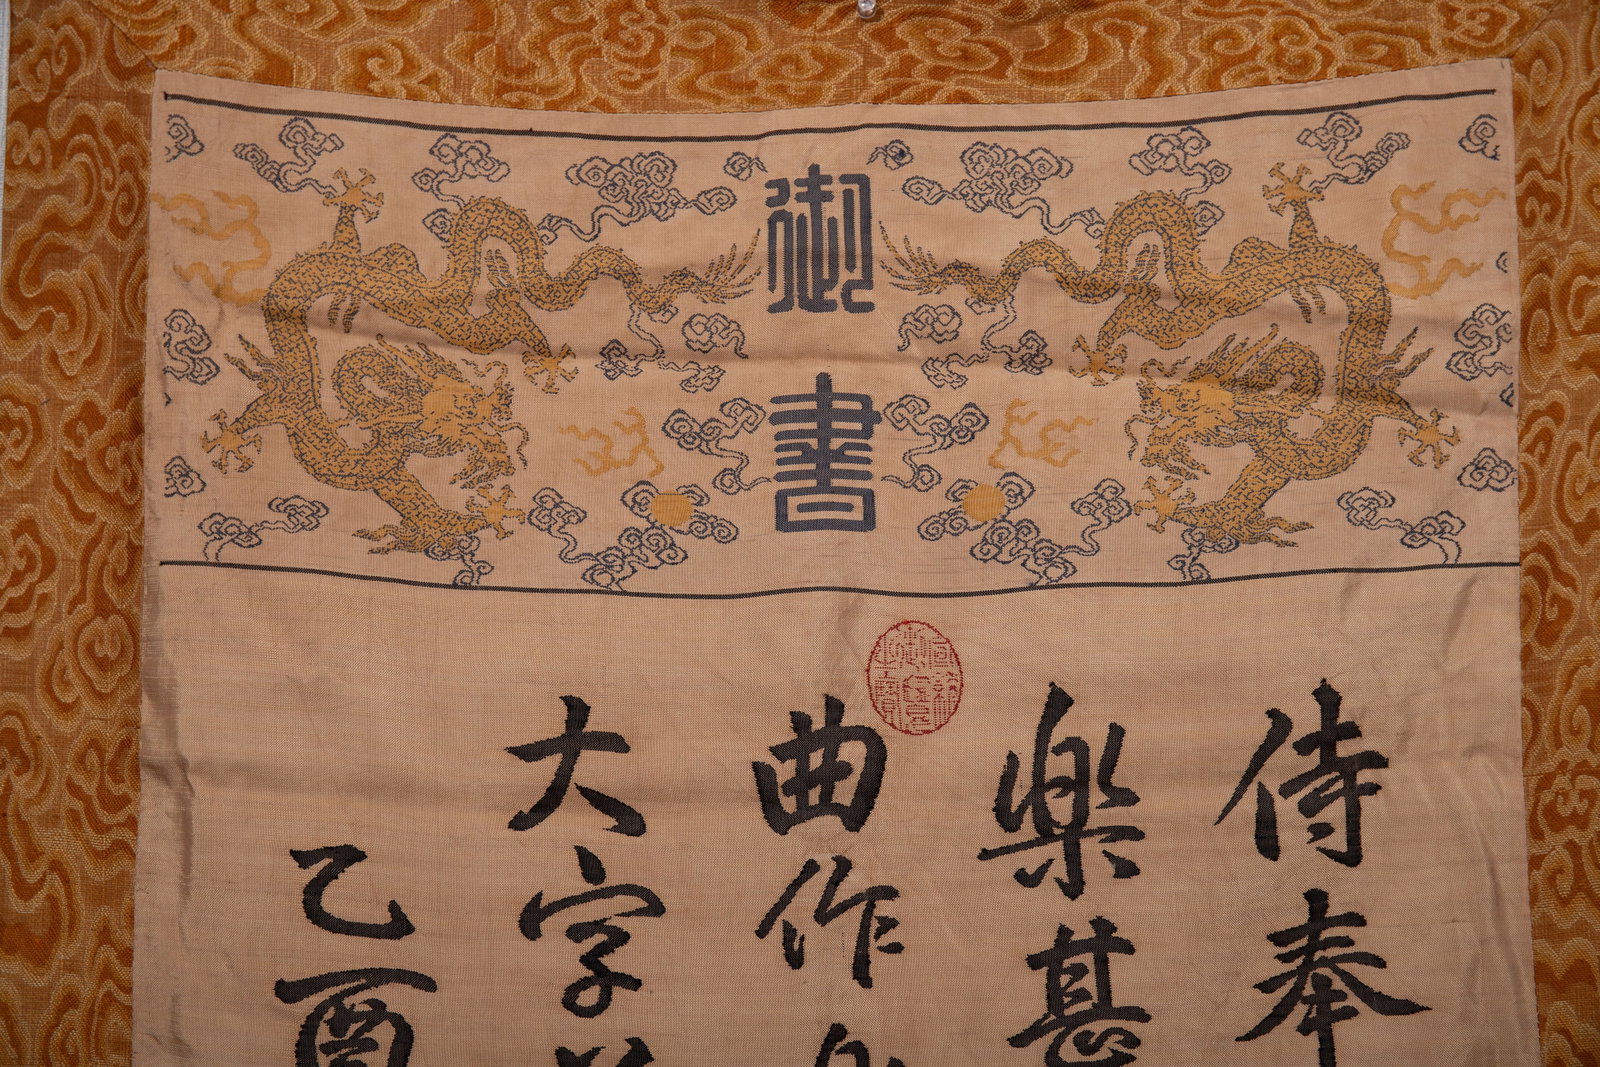 御
書
侍奉
樂甚
曲作
大字
乙酉